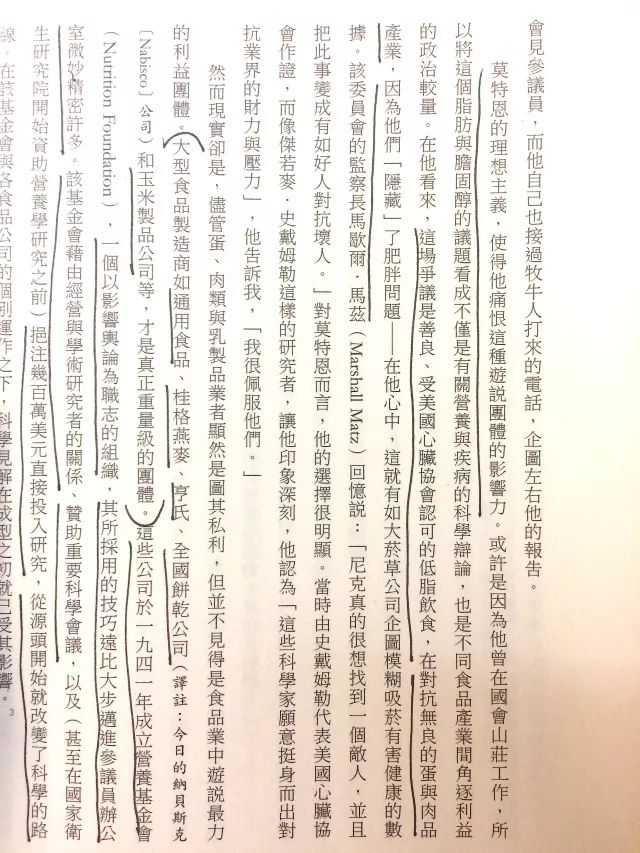 會見參議員，而他自己也接過牧牛人打來的電話，企圖左右他的報告。
莫特恩的理想主義，使得他痛恨這種遊說團體的影響力。或許是因為他曾在國會山莊工作，所
以將這個脂肪與膽固醇的議題看成不僅是有關營養與疾病的科學辯論，也是不同食品產業間角逐利益
的政治較量。在他看來，這場爭議是善良、受美國心臟協會認可的低脂飲食，在對抗無良的蛋與肉品
產業，因為他們「隱藏」了肥胖問題——在他心中，這就有如大菸草公司企圖模糊吸菸有害健康的數
據。該委員會的監察長馬歇爾·馬茲（Marshall Matz）回憶說：「尼克真的很想找到一個敵人，並且
把此事變成有如好人對抗壞人。」對莫特恩而言，他的選擇很明顯。當時由史戴姆勒代表美國心臟協
會作證，而像傑若麥·史戴姆勒這樣的研究者，讓他印象深刻，他認為「這些科學家願意挺身而出對
抗業界的財力與壓力」，他告訴我，「我很佩服他們。」
然而現實卻是，儘管蛋、肉類與乳製品業者顯然是圖其私利，但並不見得是食品業中遊說最力
的利益團體。大型食品製造商如通用食品、桂格燕麥、亨氏、全國餅乾公司（譯註：今日的納貝斯克
〔Nabisco〕公司）和玉米製品公司等，才是真正重量級的團體。這些公司於一九四一年成立營養基金會
（Nutrition Foundation），一個以影響輿論為職志的組織，其所採用的技巧遠比大步邁進參議員辦公
室微妙精密許多。該基金會藉由經營與學術研究者的關係、贊助重要科學會議，以及（甚至在國家衛
生研究院開始資助營養學研究之前）挹注幾百萬美元直接投入研究，從源頭開始就改變了科學的路
線。在該基金會與各食品公司的個別運作之下，科學見解在成型之初就已受其影響。3